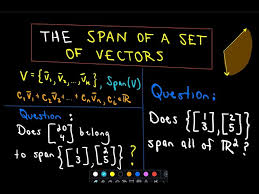 THE SPAN OF A SET
OF VECTORS
V = {v̄₁, v̄₂, ..., v̄ₙ}, Span(V)
c₁v̄₁ + c₂v̄₂ + ... + cₙv̄ₙ, cᵢ ∈ ℝ
Question:
Does [20 4] belong
to span{[1 3], [2 5]}?
Question:
Does {[1 3], [2 5]}
span all of ℝ²?